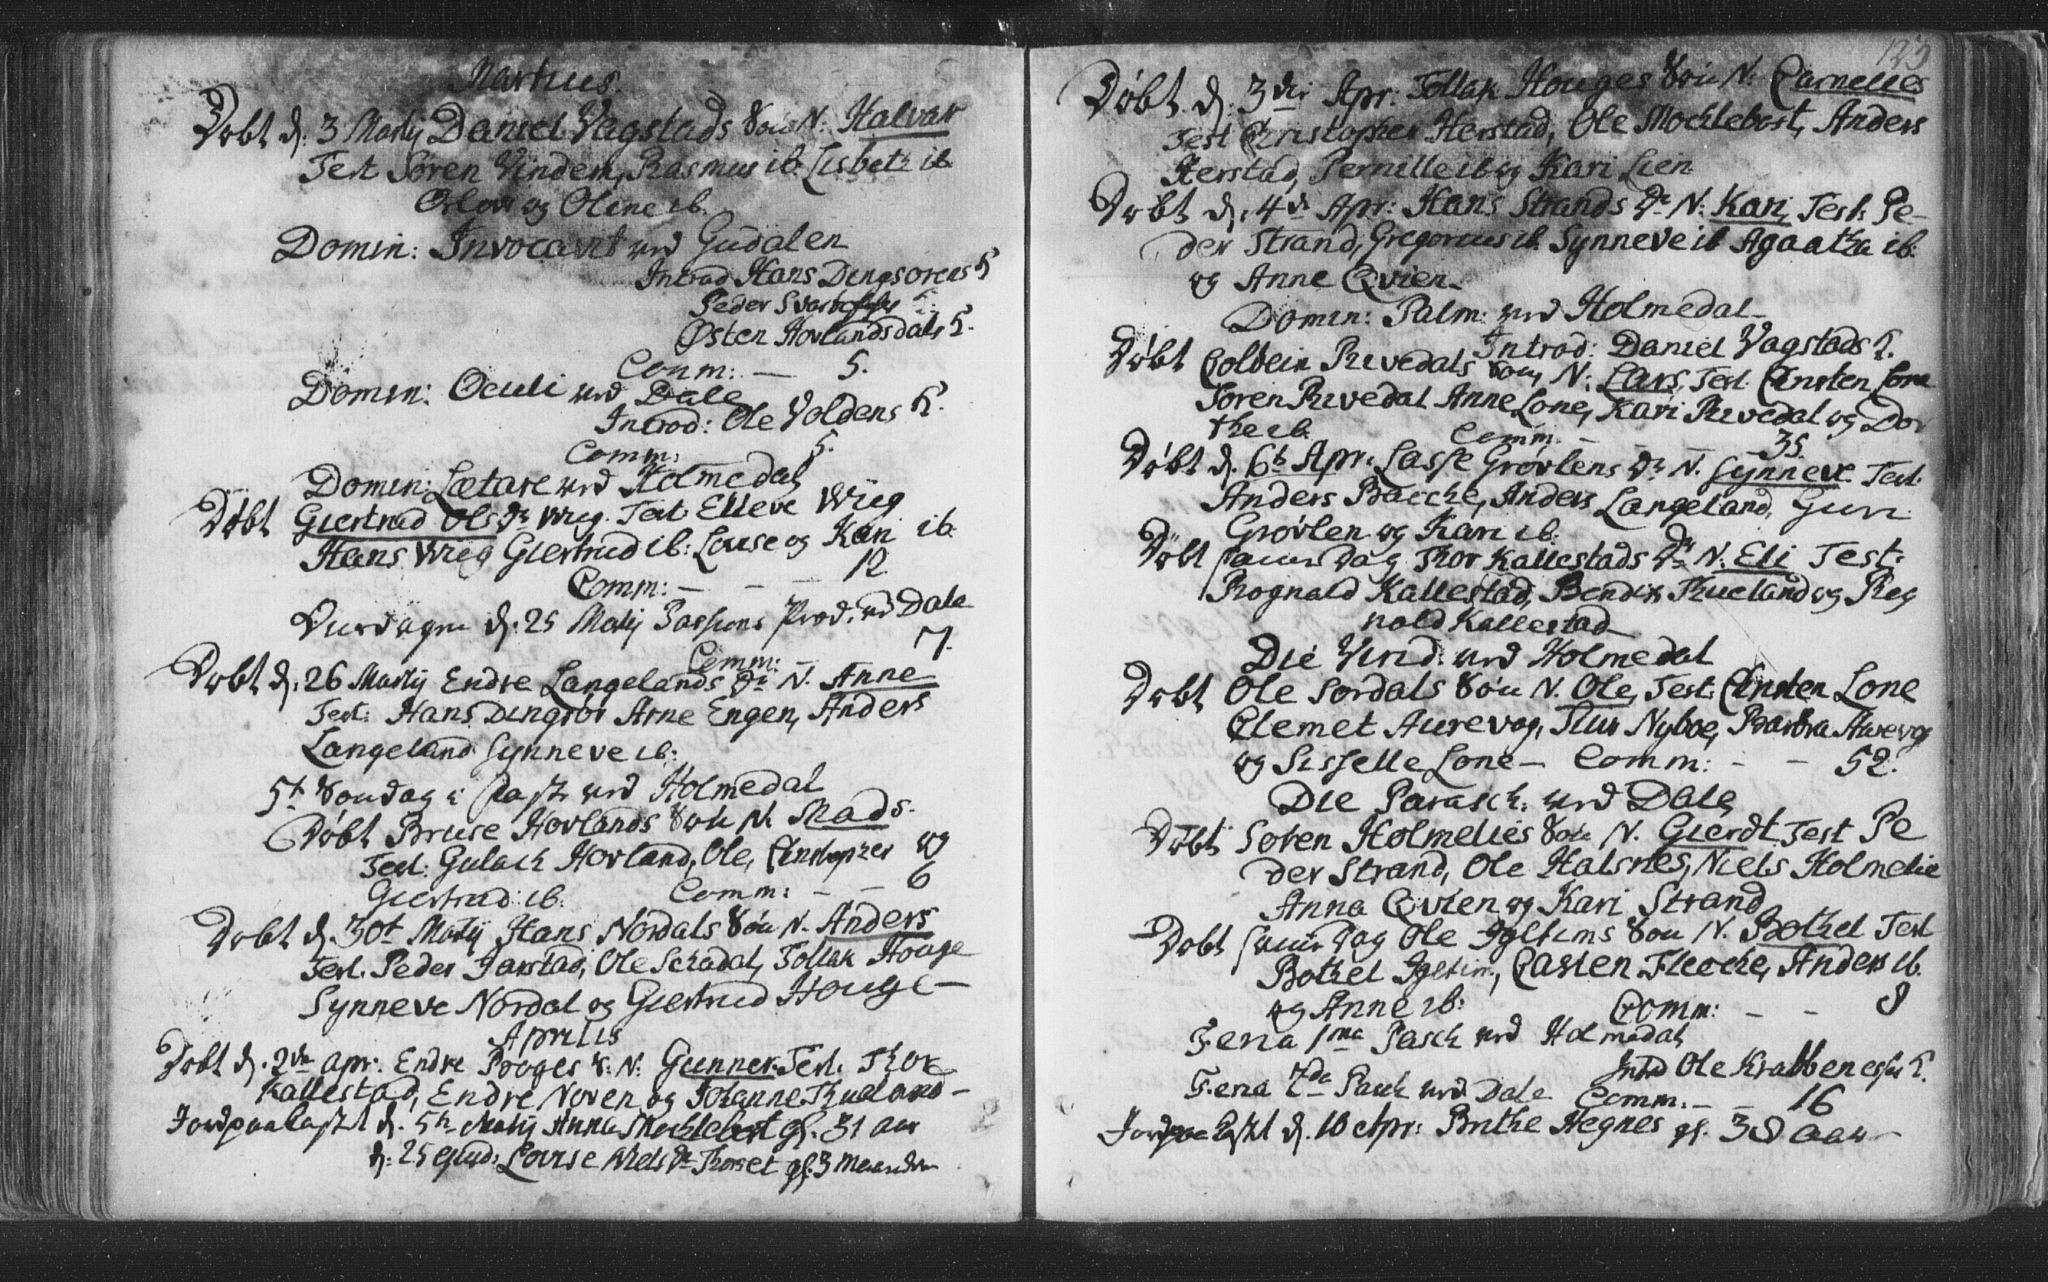 Martius.
Døbt d. 3 Martij Daniel Vagstads Søn N. Halvar
Test Søren Vindem, Rasmus ib. Lisbeth ib
og Oline ib.
Domin: Invocavit ved Gudalen
Introd Hans Dingsørens h
Peder
Østen Hovlandsdals h.
Comm: — 5.
Domin: Oculi ved Dale
Introd: Ole Voldens h.
Comm: 5.
Domin: Lætare ved Holmedal
Døbt Giertrud Ols dr Wieg. Test. Elleve Wieg
Hans Wieg Giertrud ib: Louse og Kari ib.
Comm: — — — 12
d. 25 Martij Passions Præd. ved Dale
Comm: — 7.
Døbt d. 26 Martij Endre Langelands dr N. Anne
Test: Hans Dingsør Arne Engen, Anders
Langeland Synneve ib:
5t Søndag i fast ved Holmedal
Døbt Bruse Hovlands Søn N. Mads.
Test. Gulach Hovland, Ole, Christopher og
Giertrud ib. Comm: — — 6
Døbt d. 30t Martij Hans Nordals Søn N. Anders
Test. Peder Jarstad, Ole Schadal, Tollak Houge
Synneve Nordal og Giertrud Houge —
Aprilis
Døbt d. 2den apr: Endre S: N: Gunner. Test. Thor
Kallestad, Endre Noven og Johanne
Jordpaakast d. 5te Martij Anna Mochlebost gl. 31 aar
d: 25 Louise Niels dr gl. 3 Maaneder
123
Døbt d. 3die Apr: Tollak Houges Søn N: Carnelies
Test Christopher Herstad, Ole Mochlebost, Anders
Herstad, Pernille ib og Kari Lien
Døbt d. 4de Apr: Hans Strands dr N: Kari, Test: Pe-
der Strand, Gregorius ib. Synneve ib Agaatha ib.
og Anne Qvien
Domin: Palm: ved Holmedal —
Introd: Daniel Vagstads h.
Døbt Colbein Rivedals Søn, N: Lars, Test. Christen Lone
Søren Rivedal Anne Lone, Kari Rivedal og Dor
the ib. Comm. — — 35
Døbt d. 6t Apr: Lasse Grøvlens dr N. Synneve Test.
Anders Bacche, Anders Langeland, Guri
Grøvlen og Kari ib.
Døbt samme dag Thor Kallestads dr N: Eli Test:
Rognald Kallestad, Bendix og Rog
nold Kallestad
Die Virid: ved Holmedal
Døbt Ole Sørdals Søn N. Ole, Test: Christen Lone
Clemet Aarevog, Siur Nyboe, Barbra Aarevog
og Sisselle Lone — Comm: — — 52.
Die Parasch: ved Dale
Døbt Søren Holmelies Søn N. Gierdt Test Pe
der Strand, Ole Halsnes, Niels Holmelie
Anna Qvien og Kari Strand
Døbt samme Dag Ole Igltims Søn N. Bothel Test
Bothel Igltim, Casten Fleche, Anders ib.
og Anne ib: Comm: — — 8
Feria 1ma Pasch ved Holmedal
Introd Ole Krabbenes h.
Feria 2da Pasch ved Dale Comm: — — 16
Jordpaakast d. 10 Apr: Brithe Hegnes gl. 38 aar —